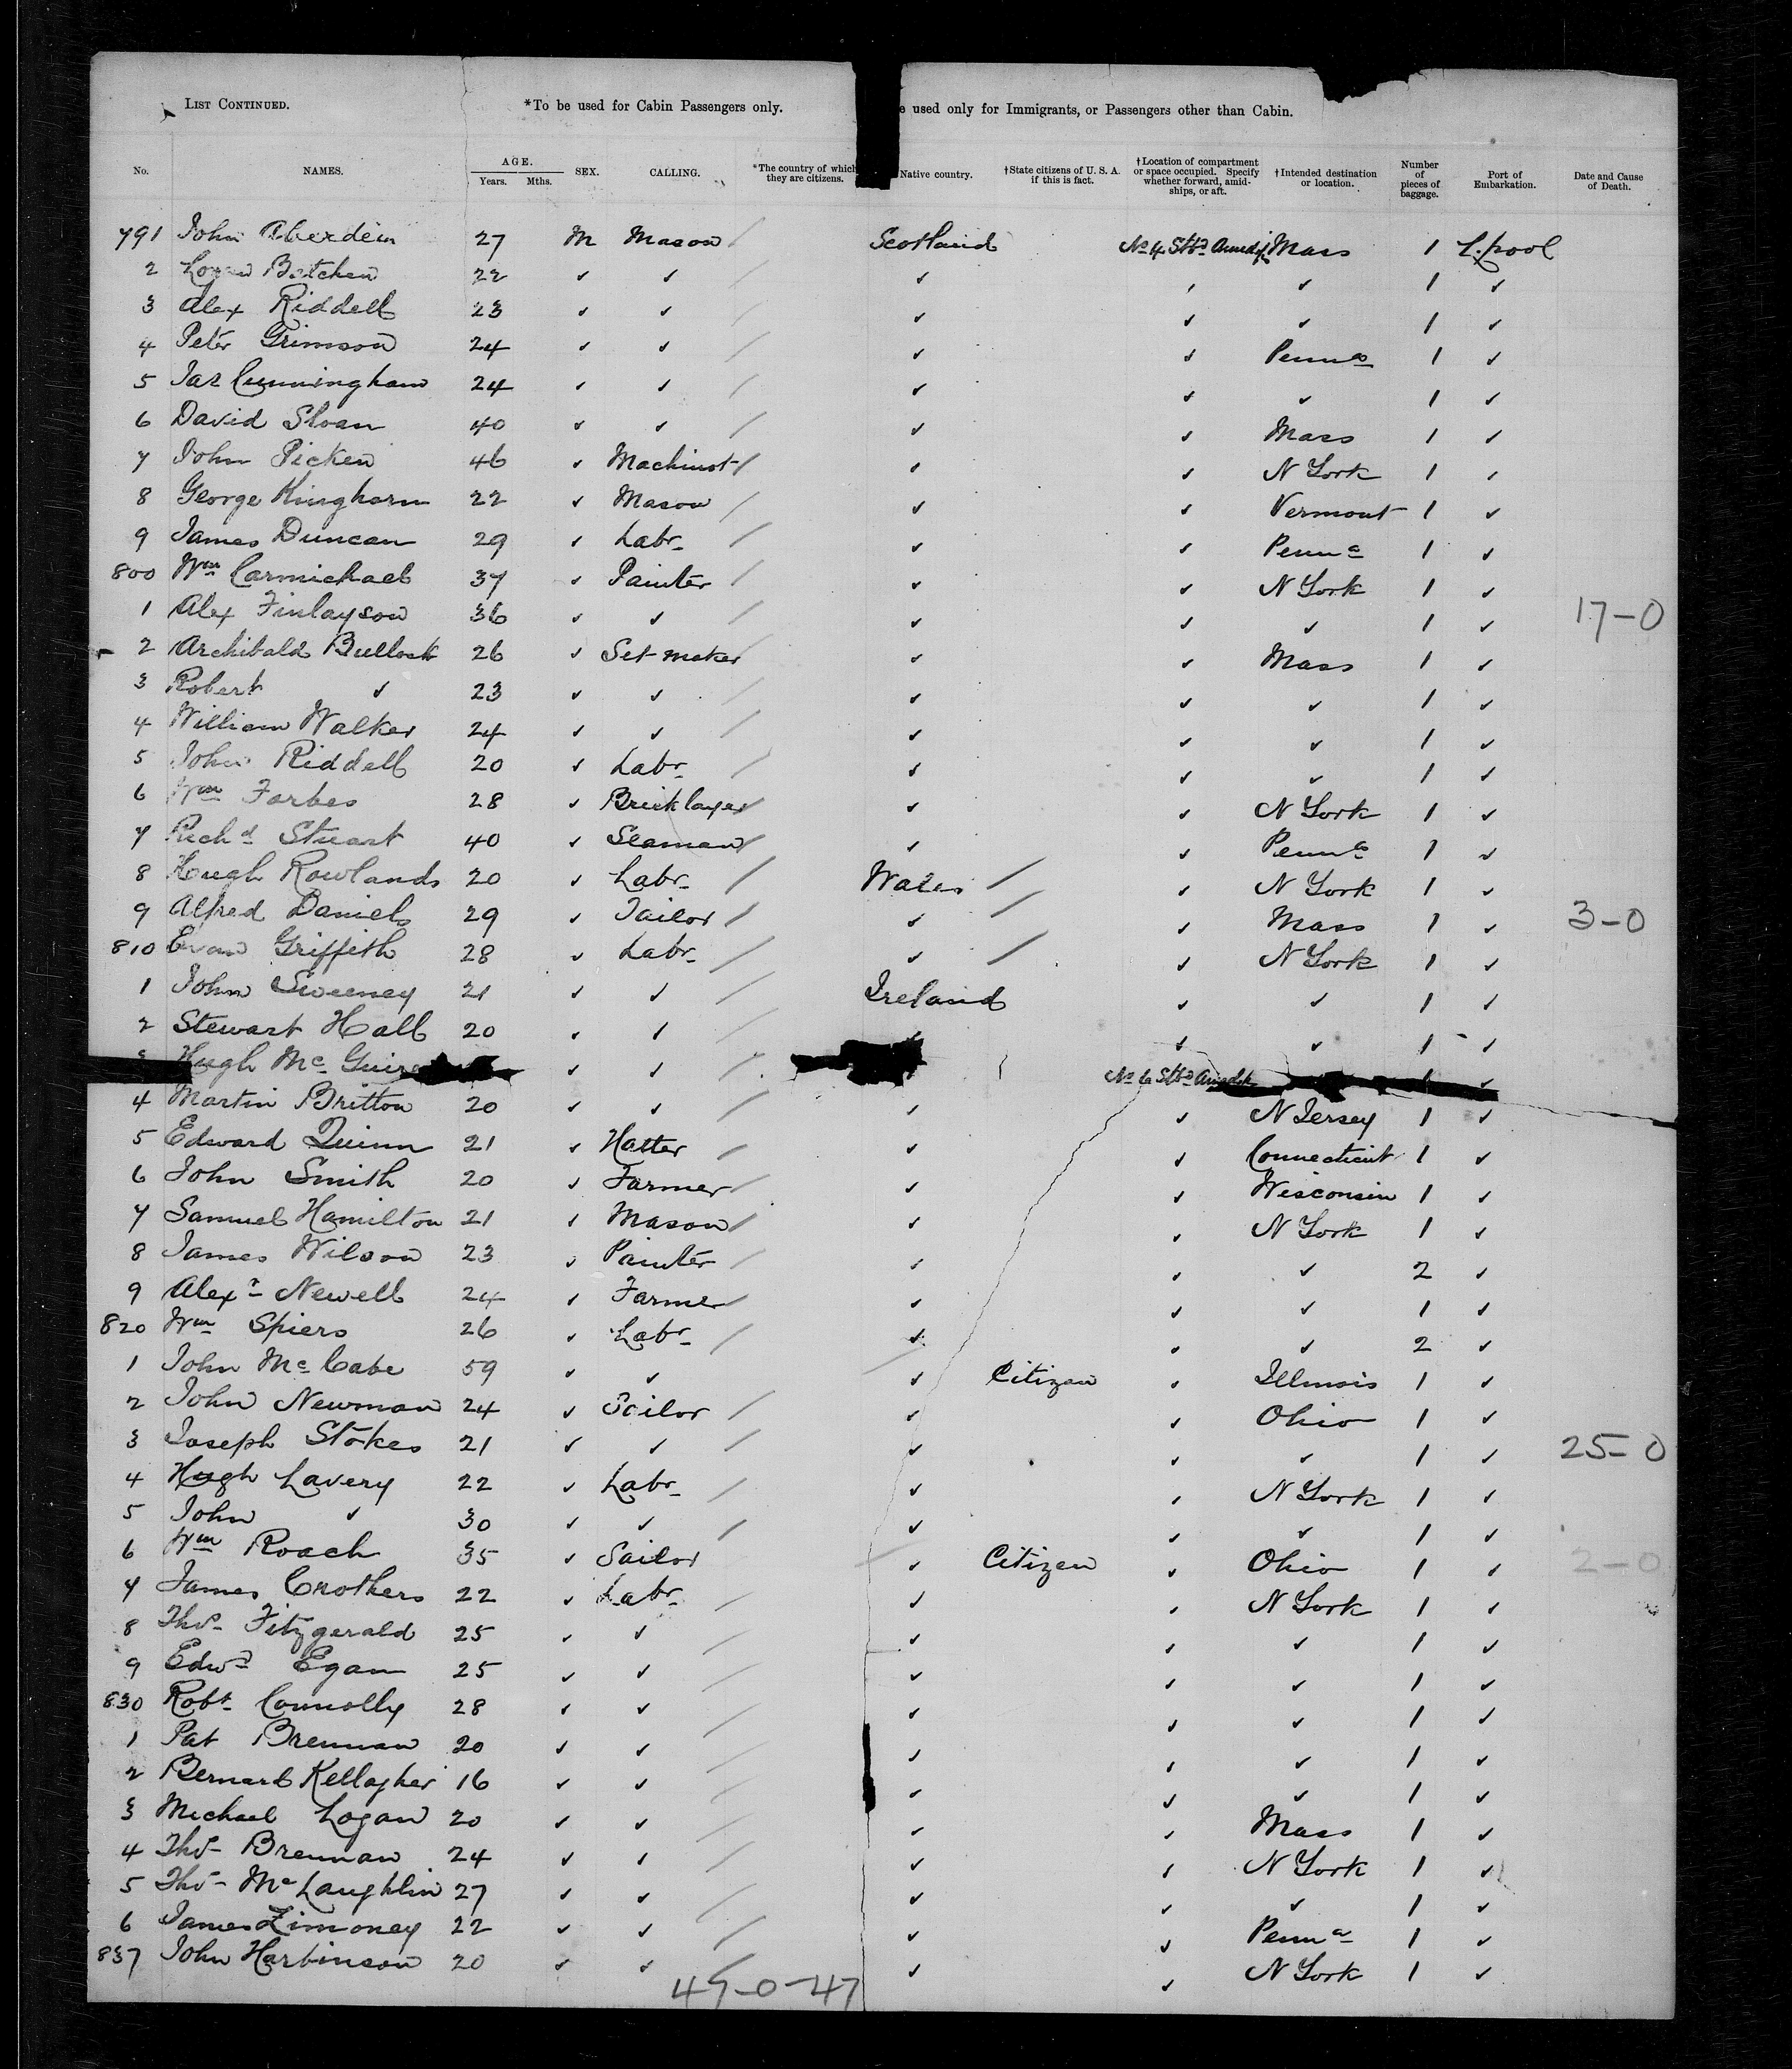 LIST CONTINUED. *To be used for Cabin Passengers only. e used only for Immigrants, or Passengers other than Cabin.
No. NAMES. AGE. Years. Mths. SEX. CALLING. *The country of which they are citizens. Native country. †State citizens of U. S. A. if this is fact. †Location of compartment or space occupied. Specify whether forward, amidships, or aft. †Intended destination or location. Number of pieces of baggage. Port of Embarkation. Date and Cause of Death.
791 John Aberdein 27 M Mason Scotland No 4 Stbd Amids Mass 1 L.pool
2 Logan Batchen 22 ✓ ✓ ✓ ✓ ✓ 1 ✓
3 Alex Riddell 23 ✓ ✓ ✓ ✓ ✓ 1 ✓
4 Peter Grimson 24 ✓ ✓ ✓ ✓ Penna 1 ✓
5 Jas Cunningham 24 ✓ ✓ ✓ ✓ ✓ 1 ✓
6 David Sloan 40 ✓ ✓ ✓ ✓ Mass 1 ✓
7 John Picken 46 ✓ Machinst ✓ ✓ N York 1 ✓
8 George Kinghorn 22 ✓ Mason ✓ ✓ Vermont 1 ✓
9 James Duncan 29 ✓ Labr ✓ ✓ Penna 1 ✓
800 Wm Carmichael 37 ✓ Painter ✓ ✓ N York 1 ✓
1 Alex Finlayson 36 ✓ ✓ ✓ ✓ ✓ 1 ✓ 17-0
2 Archibald Bullock 26 ✓ Set-maker ✓ ✓ Mass 1 ✓
3 Robert ✓ 23 ✓ ✓ ✓ ✓ ✓ 1 ✓
4 William Walker 24 ✓ ✓ ✓ ✓ ✓ 1 ✓
5 John Riddell 20 ✓ Labr ✓ ✓ ✓ 1 ✓
6 Wm Forbes 28 ✓ Bricklayer ✓ ✓ N York 1 ✓
7 Richd Stuart 40 ✓ Seaman ✓ ✓ Penna 1 ✓
8 Hugh Rowlands 20 ✓ Labr Wales ✓ N York 1 ✓
9 Alfred Daniels 29 ✓ Tailor ✓ ✓ Mass 1 ✓ 3-0
810 Evan Griffith 28 ✓ Labr ✓ ✓ N York 1 ✓
1 John Sweeney 21 ✓ ✓ Ireland ✓ ✓ 1 ✓
2 Stewart Hall 20 ✓ ✓ ✓ ✓ ✓ 1 ✓
3 Hugh Mc Guire ✓ ✓ No 6 Stbd Amids 1 ✓
4 Martin Britton 20 ✓ ✓ ✓ ✓ N Jersey 1 ✓
5 Edward Quinn 21 ✓ Hatter ✓ ✓ Connecticut 1 ✓
6 John Smith 20 ✓ Farmer ✓ ✓ Wisconsin 1 ✓
7 Samuel Hamilton 21 ✓ Mason ✓ ✓ N York 1 ✓
8 James Wilson 23 ✓ Painter ✓ ✓ ✓ 2 ✓
9 Alexr Newell 24 ✓ Farmer ✓ ✓ ✓ 1 ✓
820 Wm Spiers 26 ✓ Labr ✓ ✓ ✓ 2 ✓
1 John Mc Cabe 59 ✓ ✓ ✓ Citizen ✓ Illinois 1 ✓
2 John Newman 24 ✓ Sailor ✓ ✓ Ohio 1 ✓
3 Joseph Stokes 21 ✓ ✓ ✓ ✓ ✓ 1 ✓ 25-0
4 Hugh Lavery 22 ✓ Labr ✓ ✓ N York 1 ✓
5 John ✓ 30 ✓ ✓ ✓ ✓ ✓ 1 ✓
6 Wm Roach 35 ✓ Sailor ✓ Citizen ✓ Ohio 1 ✓ 2-0
7 James Crothers 22 ✓ Labr ✓ ✓ N York 1 ✓
8 Thos Fitzgerald 25 ✓ ✓ ✓ ✓ ✓ 1 ✓
9 Edwd Egan 25 ✓ ✓ ✓ ✓ ✓ 1 ✓
830 Robt Connolly 28 ✓ ✓ ✓ ✓ ✓ 1 ✓
1 Pat Brennan 20 ✓ ✓ ✓ ✓ ✓ 1 ✓
2 Bernard Kellagher 16 ✓ ✓ ✓ ✓ ✓ 1 ✓
3 Michael Logan 20 ✓ ✓ ✓ ✓ Mass 1 ✓
4 Thos Brennan 24 ✓ ✓ ✓ ✓ N York 1 ✓
5 Thos Mc Laughlin 27 ✓ ✓ ✓ ✓ ✓ 1 ✓
6 James Timoney 22 ✓ ✓ ✓ ✓ Penna 1 ✓
837 John Harbinson 20 ✓ ✓ ✓ ✓ N York 1 ✓
47-0-47